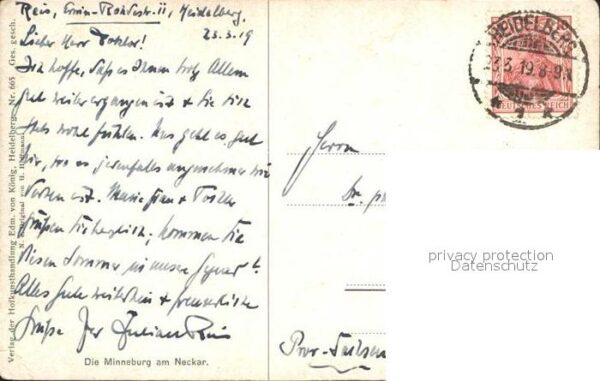 Reis, Erwin-Rohdestr. 11, Heidelberg.
23.3.19
Lieber Herr Doktor!
Ich hoffe, daß es Ihnen trotz Allem
gut weiter ergangen ist & Sie sich
stets wohl fühlen. Uns geht es gut
hier, wo es jedenfalls angenehmer wie
ist. Meine Frau & Tochter
grüßen Sie herzlich; kommen Sie
diesen Sommer in unsere Gegend?
Alles Gute weiterhin & freundliche
Grüße Ihr Julius Reis
Die Minneburg am Neckar.
Verlag der Hofkunsthandlung Edm. von König, Heidelberg. Nr. 665 Ges. gesch.
N. Original von H. Hoffmann
HEIDELBERG
23.3.19.8-9V.
DEUTSCHES REICH
Herrn
Dr. p
Prov. Sachsen
privacy protection
Datenschutz